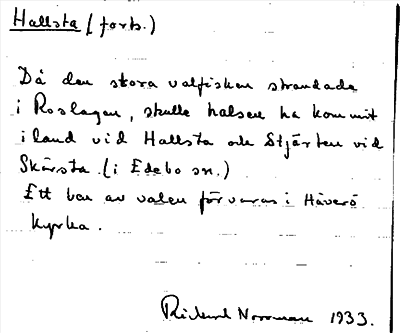 Hallsta (forts.)
Då den stora valfisken strandade
i Roslagen, skulle halsen ha kommit
i land vid Hallsta och Stjärten vid
Skärsta (i Edebo sn.)
Ett ben av valen förvaras i Häverö
kyrka.
Richard Norrman 1933.